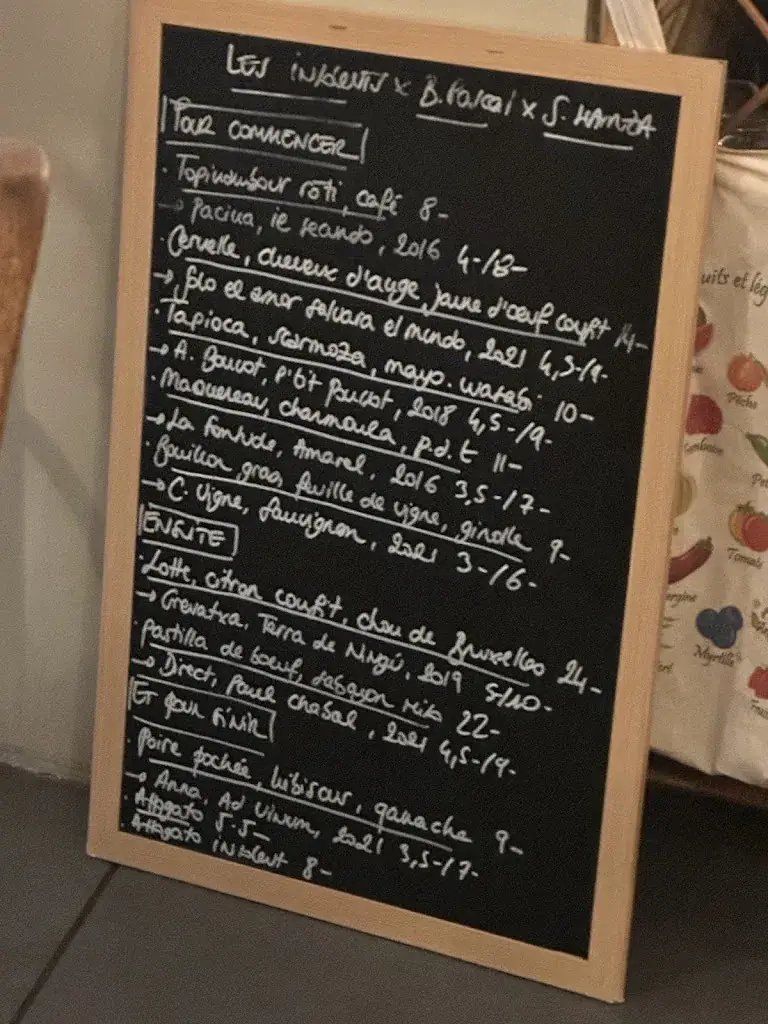 LES INSOLENTS x B. Pascal x S. HAMZA
POUR COMMENCER
· Topinambour rôti, café 8-
→ Pacina, ie secondo, 2016 4-/8-
· Cervelle, cheveux d'ange, jaune d'oeuf confit 14-
→ Solo el amor salvara el mundo, 2021 4,5-/9-
· Tapioca, scarmoza, mayo. wasabi 10-
→ A. Boucot, P'tit Pucot, 2018 4,5-/9-
· Maquereau, charmoula, p.d.t 11-
→ La Fontude, Amarel, 2016 3,5-/7-
· Bouillon gras, feuille de vigne, girolle 9-
→ C. Vigne, Sauvignon, 2021 3-/6-
ENSUITE
· Lotte, citron confit, chou de Bruxelles 24-
→ Crevatxa, Terra de Ningú, 2019 5/10-
· Pastilla de boeuf, sabayon miso 22-
→ Direct, Paul Chabal, 2021 4,5-/9-
ET POUR FINIR
· Poire pochée, hibiscus, ganache 9-
→ Anna, Ad Vinum, 2021 3,5-/7-
· Affogato 5.5-
· Affogato insolent 8-
uits et lég
Pêche
Tomate
Myrtille